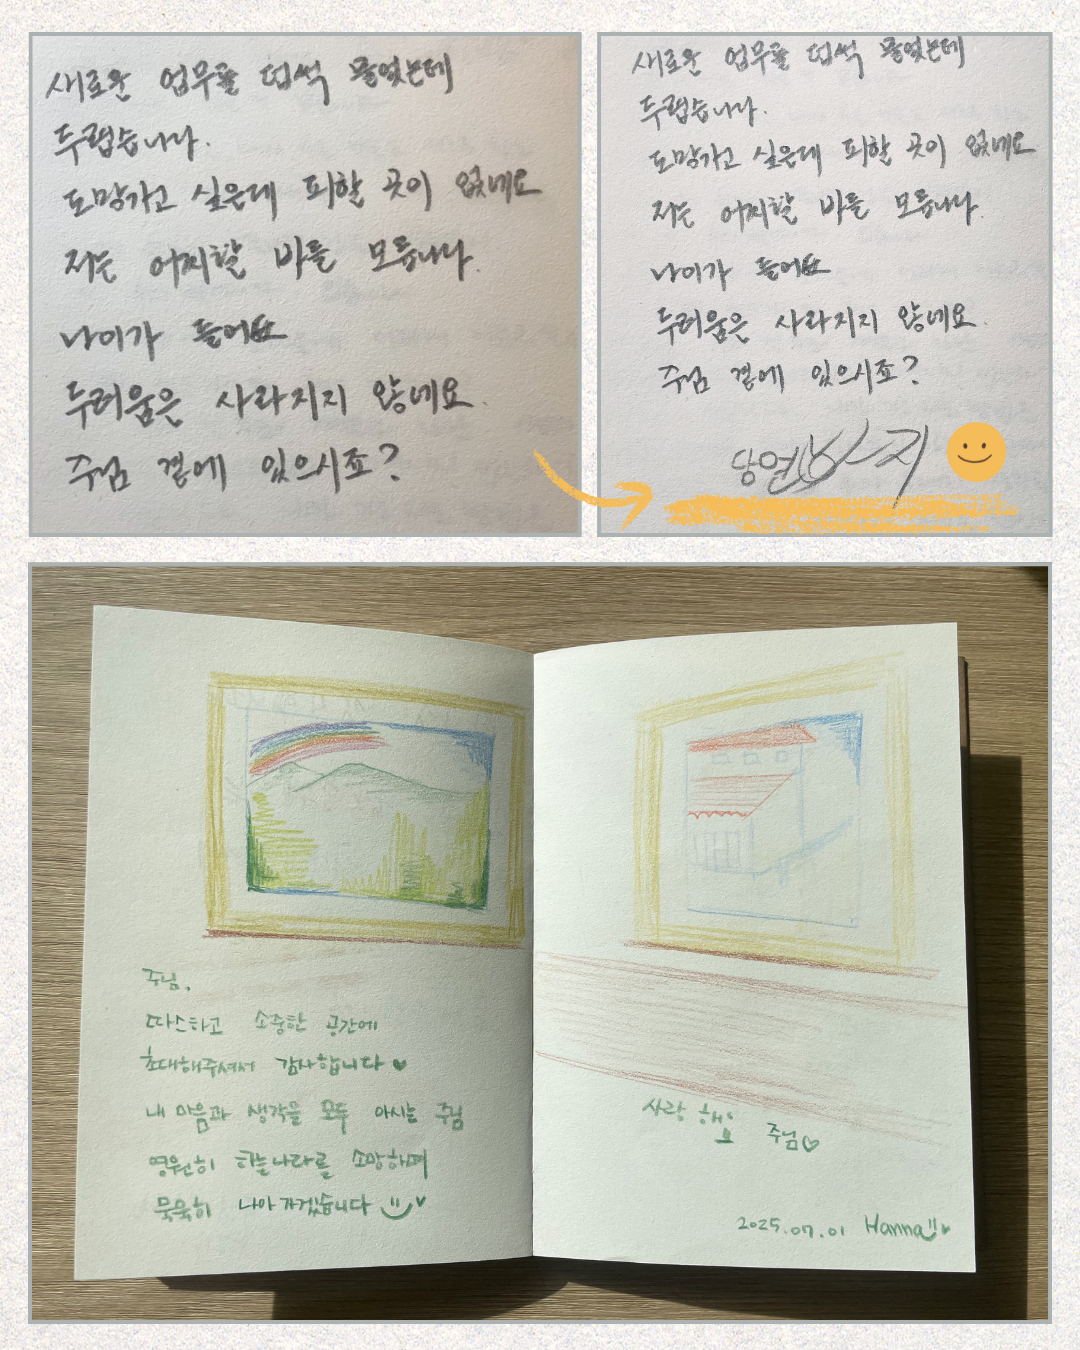 새로운 업무를 덥썩 물었는데
두렵습니다.
도망가고 싶은데 피할 곳이 없네요
저는 어찌할 바를 모릅니다.
나이가 들어도
두려움은 사라지지 않네요.
주님 곁에 있으시죠?
새로운 업무를 덥썩 물었는데
두렵습니다.
도망가고 싶은데 피할 곳이 없네요
저는 어찌할 바를 모릅니다.
나이가 들어도
두려움은 사라지지 않네요.
주님 곁에 있으시죠?
당연
주님,
따스하고 소중한 공간에
초대해주셔서 감사합니다 ♥
내 마음과 생각을 모두 아시는 주님
영원히 하늘나라를 소망하며
묵묵히 나아가겠습니다
사랑해요 주님♡
2025.07.01 Hanna